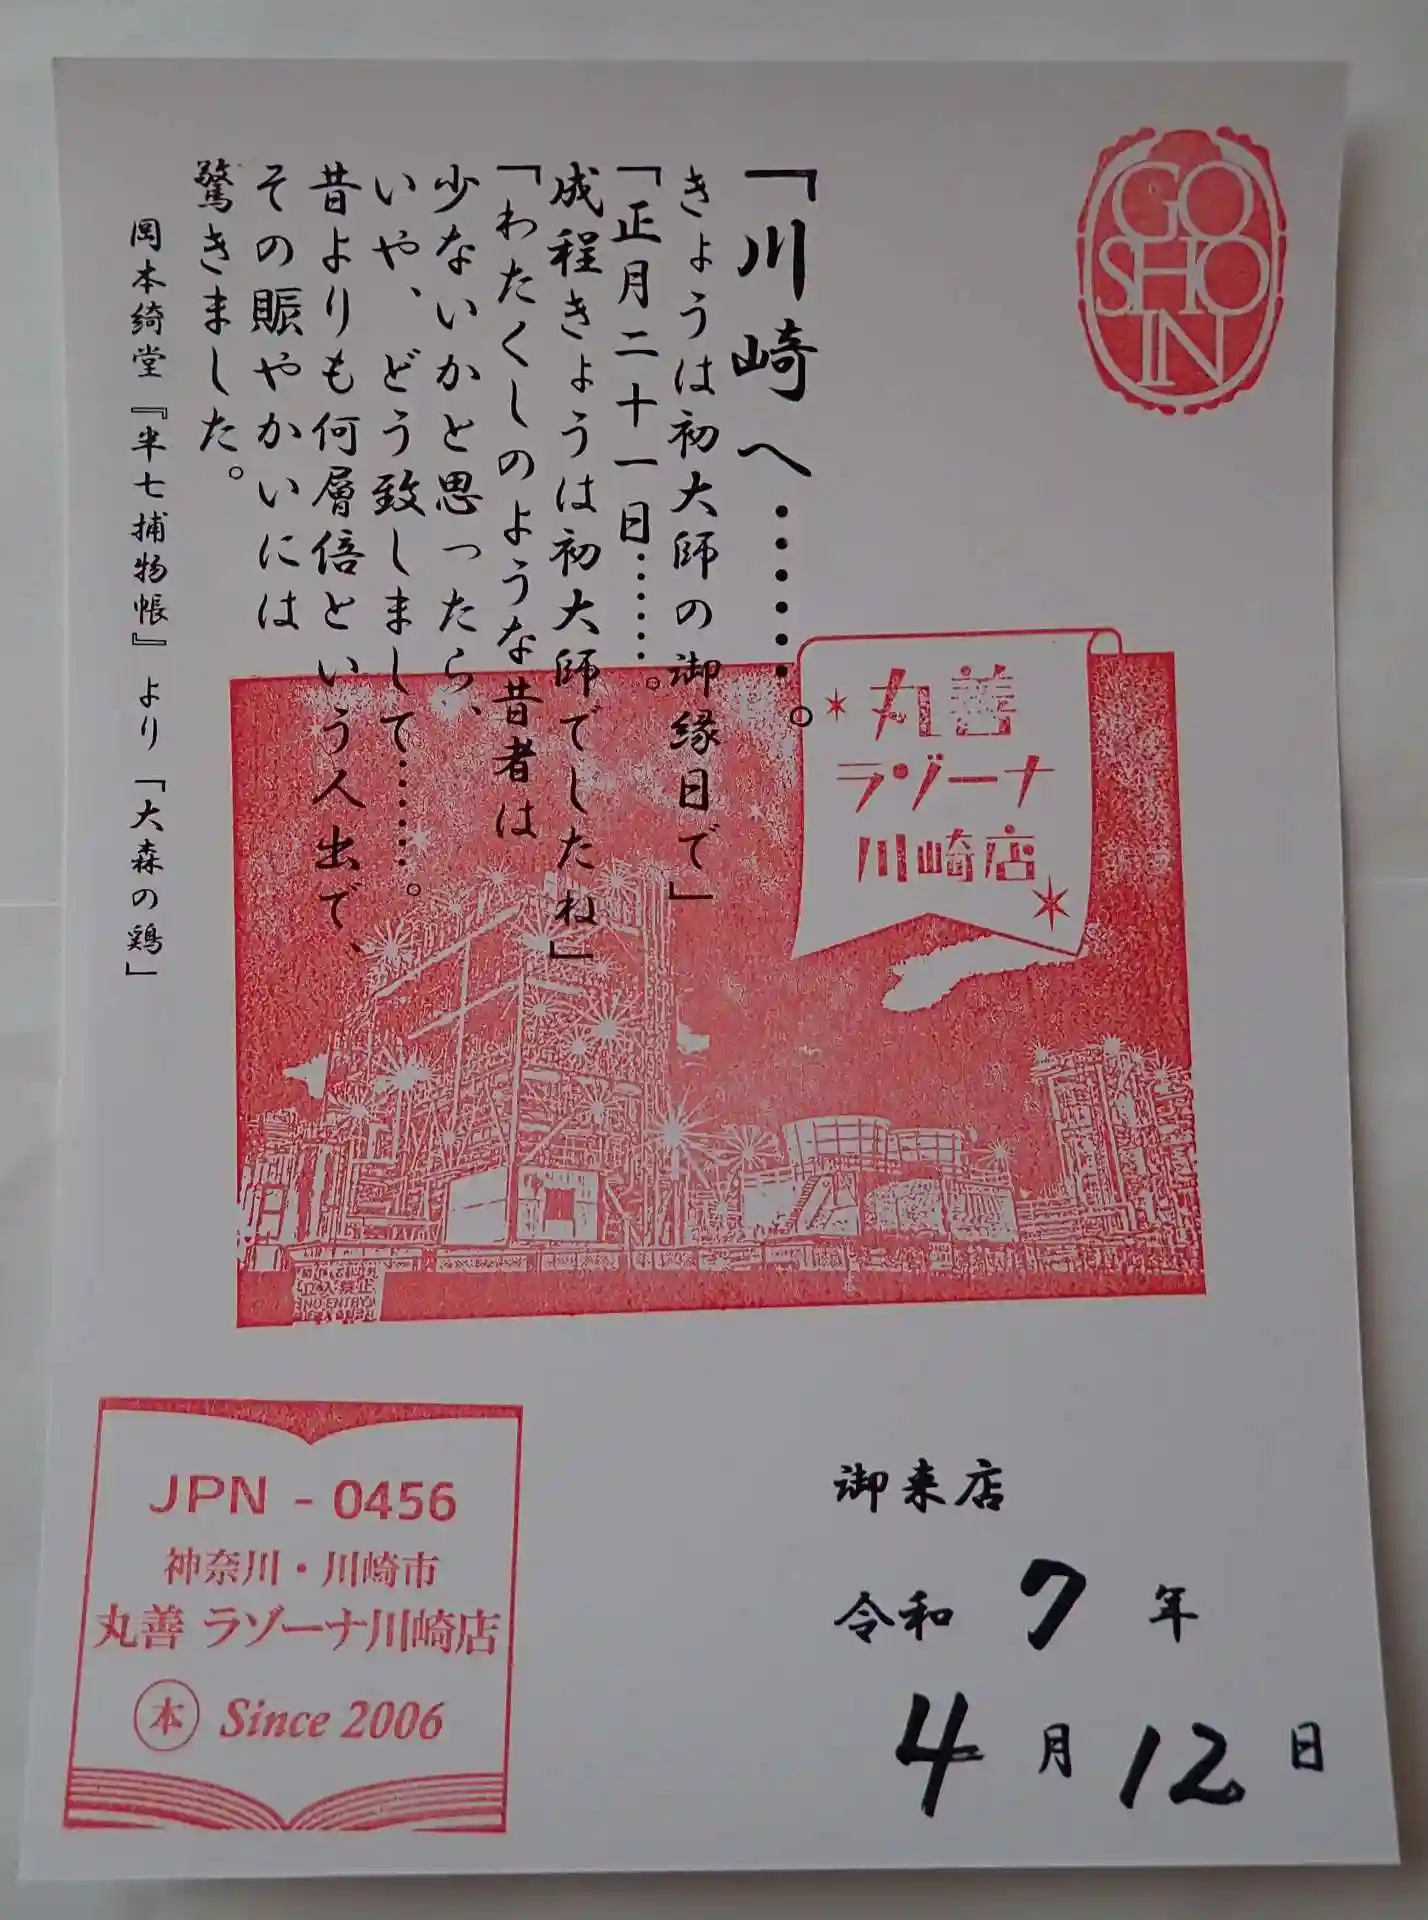 GO
SHO
IN
「川崎へ・・・・・・。
きょうは初大師の御縁日で」
「正月二十一日……。
成程きょうは初大師でしたね」
「わたくしのような昔者は
少ないかと思ったら、
いや、どう致しまして……。
昔よりも何層倍という人出で、
その賑やかいには
驚きました。
岡本綺堂『半七捕物帳』より「大森の鶏」
丸善
ラゾーナ
川崎店
立入禁止
NO ENTRY
JPN - 0456
神奈川・川崎市
丸善 ラゾーナ川崎店
本 Since 2006
御来店
令和 7 年
4 月 12 日